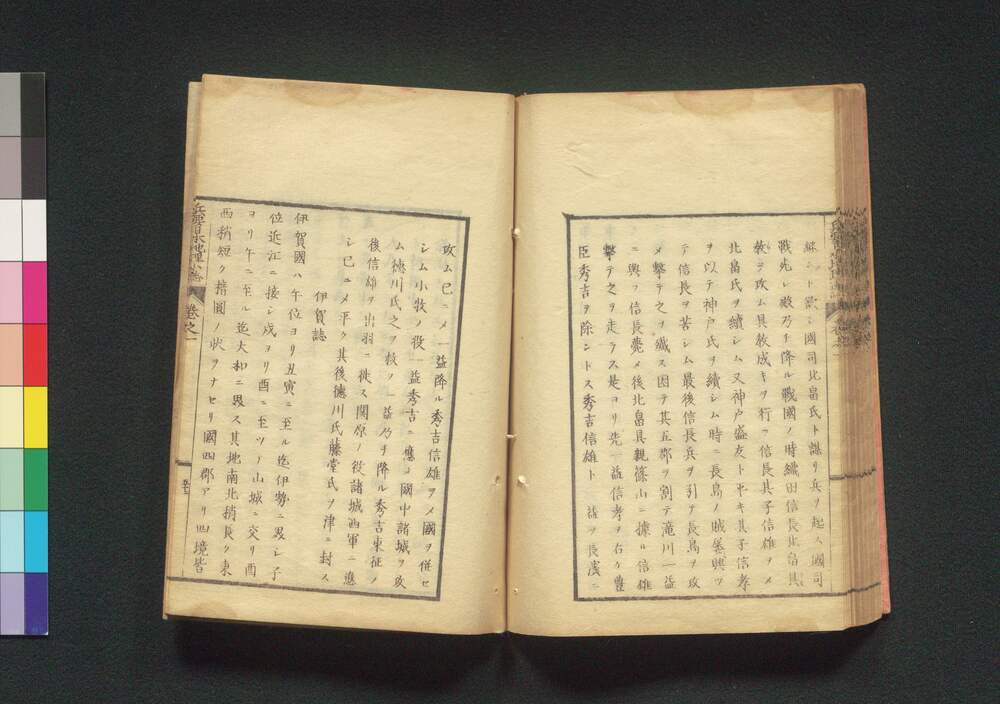 継シト欲シ國司北畠氏ト謀リ兵ヲ起ス國司
戰先レ敗乃チ降ル戰國ノ時織田信長北畠具
教ヲ攻ム具教成キヲ行フ信長其子信雄ヲメ
北畠氏ヲ續シム又神戸盛友ト平キ其子信孝
ヲ以テ神戸氏ヲ續シム時ニ長島ノ賊屡興ツ
テ信長ヲ苦シム最後信長兵ヲ引テ長島ヲ攻
メ撃テ之ヲ織ス因テ其五郡ヲ割テ滝川一益
ニ與フ信長薨メ後北畠具親篠山ニ據ル信雄
撃テ之ヲ走ラス是ヨリ先一益信孝ヲ右ケ豊
臣秀吉ヲ除ントス秀吉信雄ト 益ヲ長濱ニ
攻ム已ニメ一益降ル秀吉信雄ヲメ國ヲ併セ
シム小牧ノ役一益秀吉ニ應メ國中諸城ヲ攻
ム徳川氏之ヲ救フ一益乃チ降ル秀吉東征ノ
後信雄ヲ出羽ニ徙ス関原ノ役諸城西軍ニ應
シ已ニメ平ク其後徳川氏藤堂氏ヲ津ニ封ス
伊賀誌
伊賀國ハ午位ヨリ丑寅ニ至ル迄伊勢ニ界シ子
位近江ニ接シ戌ヨリ酉ニ至ツノ山城ニ交リ酉
ヨリ午ニ至ル迄大和ニ界ス其地南北稍長ク東
西稍短ク撱圓ノ状ヲナセリ國四郡アリ四境皆
卷之一